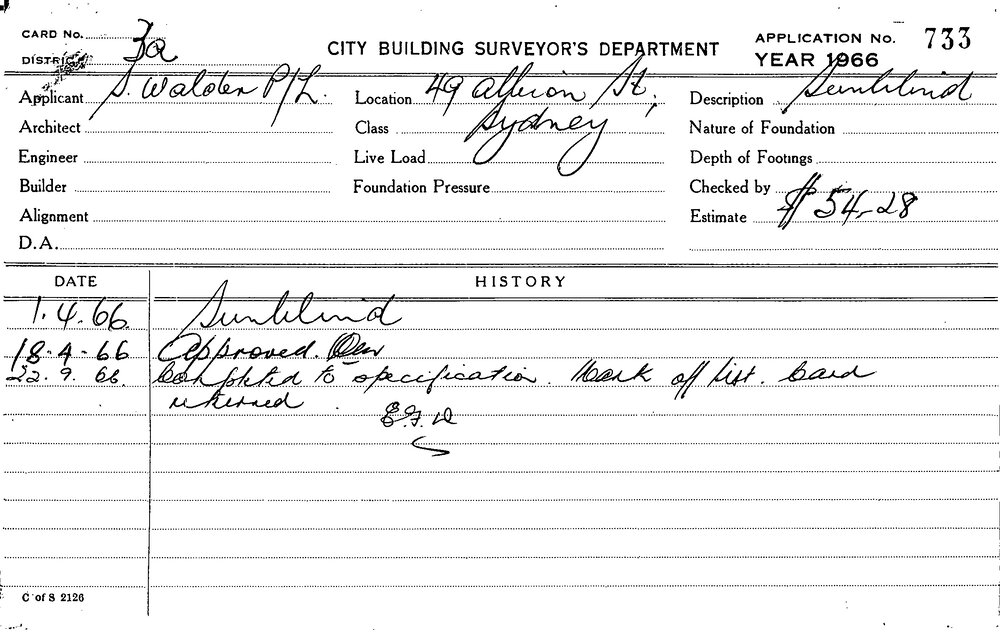 CARD No. 3a
DISTRICT
CITY BUILDING SURVEYOR'S DEPARTMENT
APPLICATION No. 733
YEAR 1966
Applicant S. Walder P/L.
Location 49 Albion St,
Sydney
Description Sunblind
Architect
Class
Nature of Foundation
Engineer
Live Load
Depth of Footings
Builder
Foundation Pressure
Checked by
Alignment
Estimate $ 54-28
D.A.
DATE HISTORY
1.4.66. Sunblind
18.4.66 Approved.
22.9.66 Completed to specification. Mark off list. Card
returned
C of S 2126